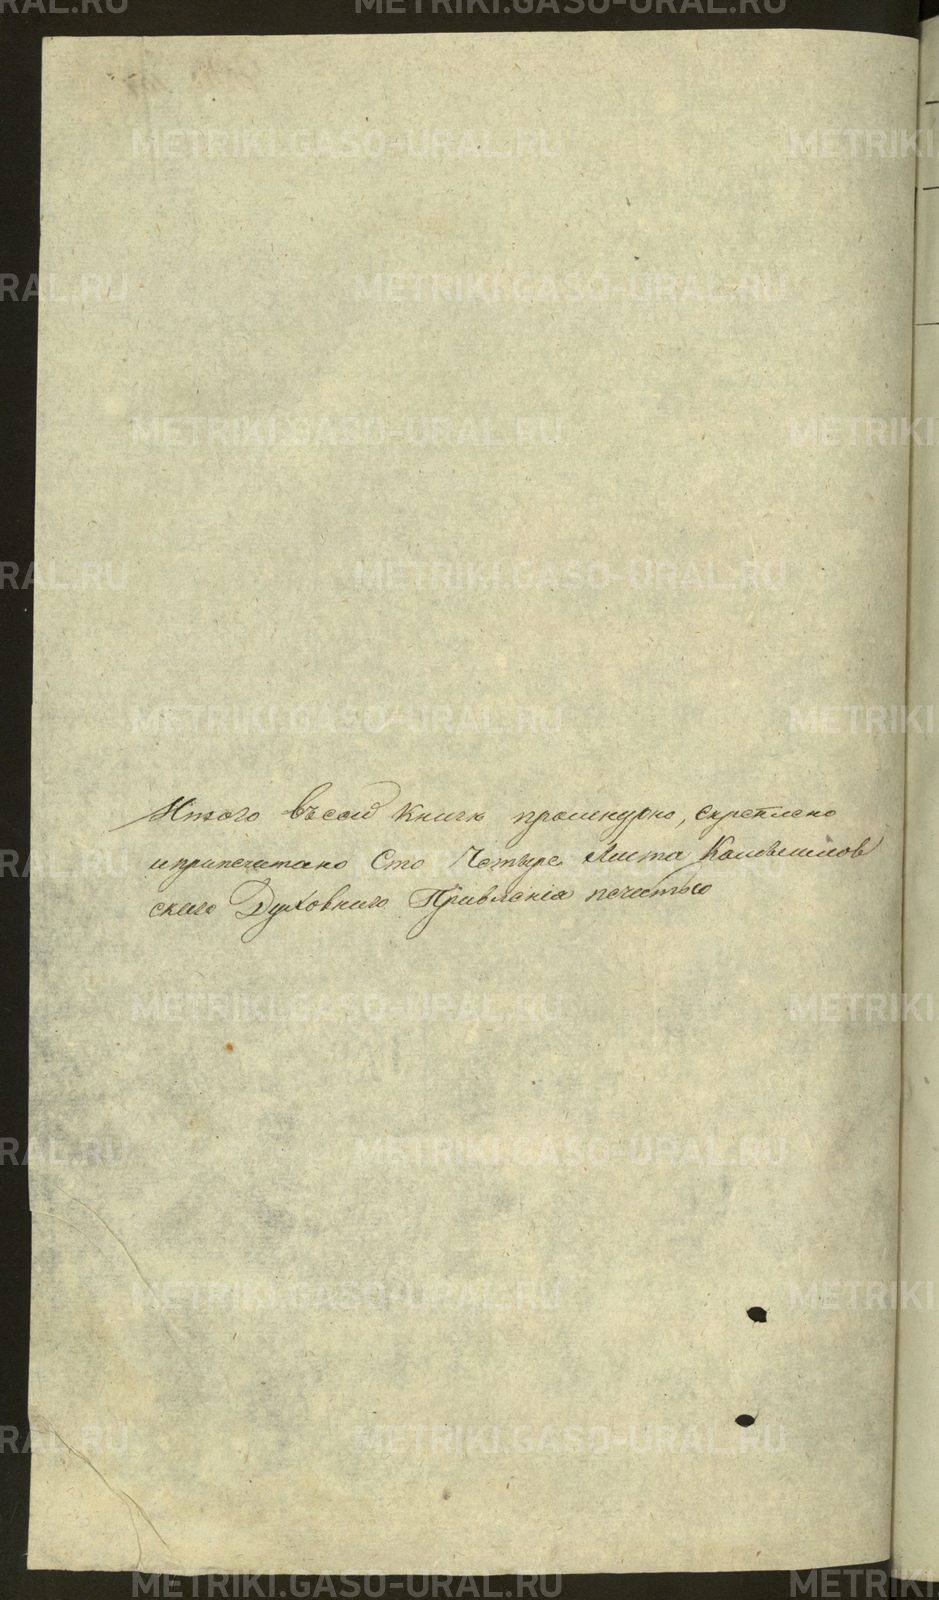 METRIKI.GASO-URAL.RU
Итого въ сей книгѣ прошнурно, скреплено
и припечатано Сто Четыре Листа Камышлов
скаго Духовнаго Правленія печатью